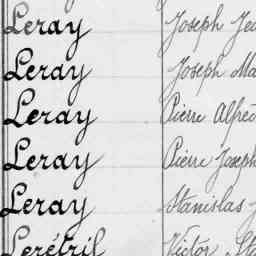 Leray Joseph Jea
Leray Joseph Ma
Leray Pierre Alfred
Leray Pierre Joseph
Leray Stanislas J
Lerétril Victor Sta